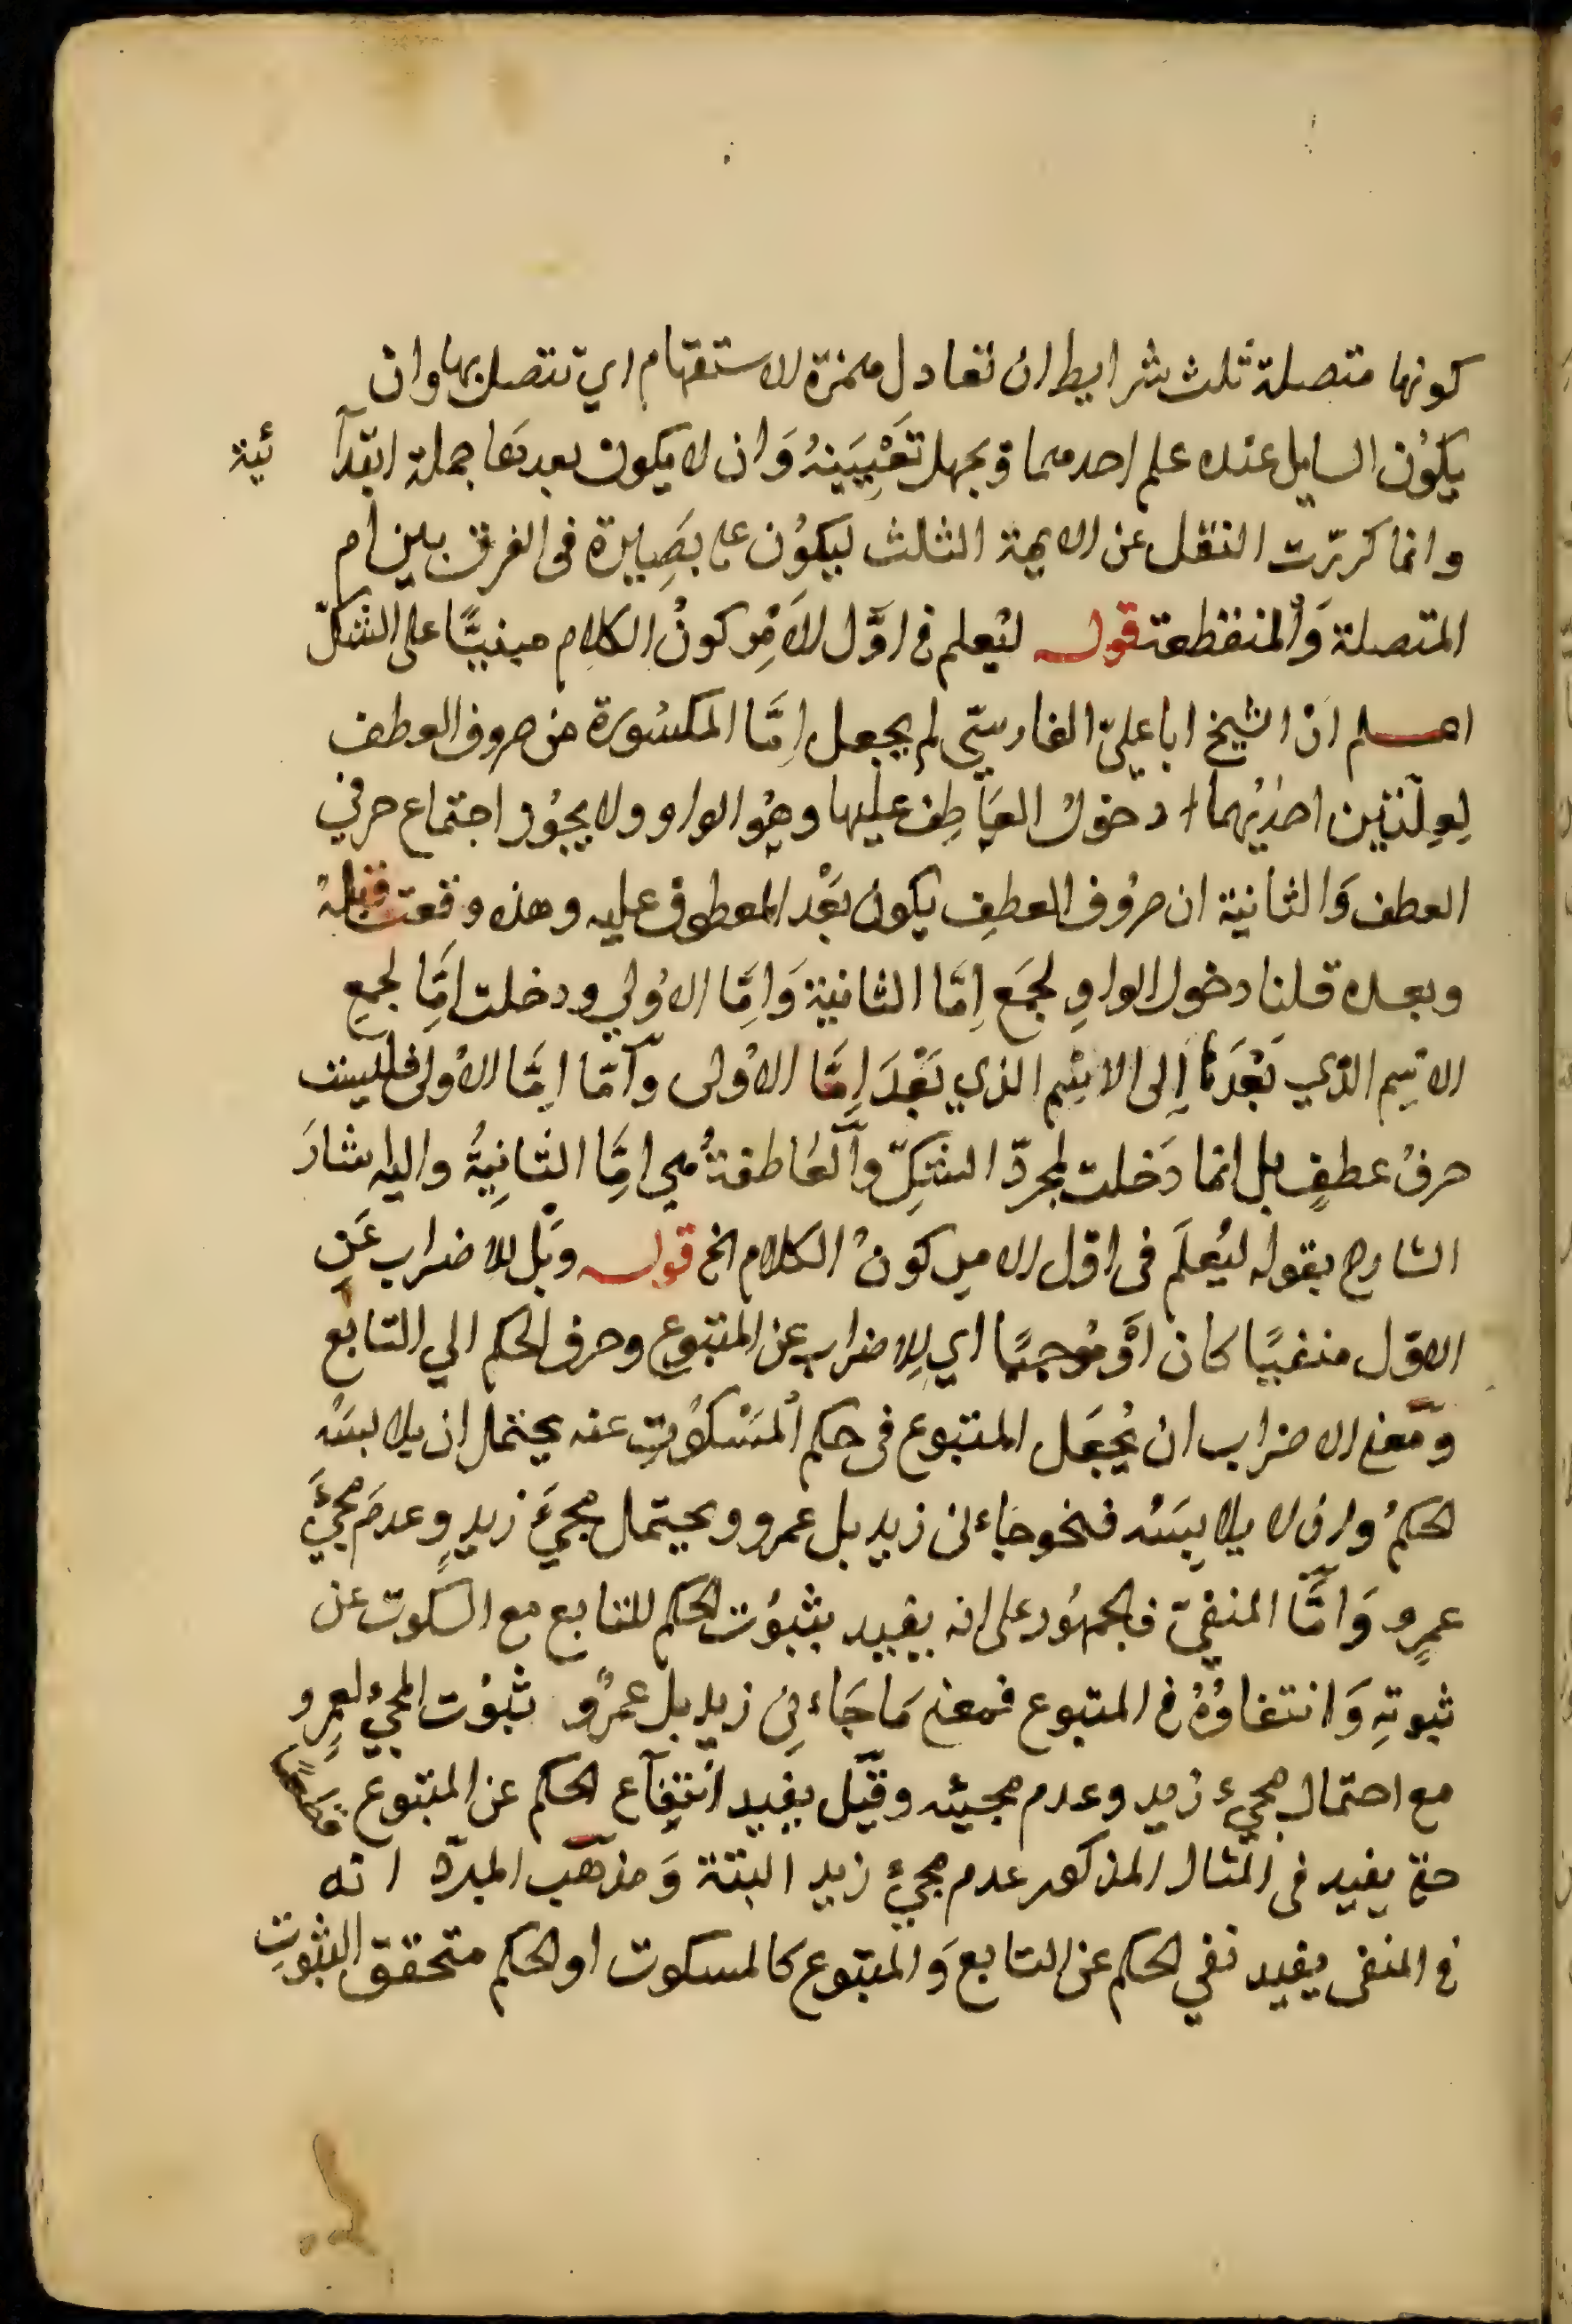 كونها متصلة ثلث شرايط ان تعادل همزة الاستفهام اي تتصل بها وان
يكوُن السايل عنده علم احدهما وَيجهل تَعْيِيَينهُ وَان لا يكون بعدهَا جملة ابتدآئية
وانما كررّت النقل عن الايمة الثلث ليكوُن على بصَِيرة فى الفرق بين ام
المتصلة وَالمنقطعة قوله ليُعلم فى اوَّل الاَمْرِ كونُ الكلام مبنيًّا على الشكّ
اعلم انّ الشيخ ابا عليّ الفارسيّ لم يجعل اِمَّا المكسُورة من حروف العطف
لِعِلّتين احدٰيهما دخوُل العَاطِف عليها وهُو الواو ولا يجوُز اجتماع حرفي
العطف وَالثانية ان حرُوف العطفِ يكون بَعْد المعطوف عليه وهذه وقعت قبلهُ
وبعده قلنا دخول الواوِ لجَمع اِمّا الثانية وَاِمَّا الاوُلي ودخلت اِمَّا لجمعِ
الاسِم الذّي بَعْدَهَا اِلى الاسِْم الذي بَعْدَ اِمَّا الاوُلى وَاَمّا اِمَّا الاوُلى فليست
حرفُ عطفٍ بل انما دَخلت لمجردّ الشكِّ وَالعَاطفةُ هي اِمَّا الثانِيةُ واليه اشارَ
الشارح بقوله ليُعلَم فى اوّل الامر كونُ الكلام الخ قوله وَبَل للاضراب عَنِ
الاوّل منفيًا كان اَوْ مُوجبًا اي لِلاضراب عن المتبوع وصرف الحكم الي التابع
وَمَعنى الاضراب ان يُجعَل المتبوع فى حكم المَسْكوُتِ عنه يحتمل ان يلابسَهُ
الحكمُ وان لا يلابِسَهُ فنحو جَاءنى زيد بل عمرو ويحتمل مجئَ زيدٍ وعدمَ مجئَِ
عمرٍو وَامَّا المنفىّ فالجمهُور على انه يفيد بثبوُت الحكم للتابع مع السكوت عن
ثبوتِهِ وَانتفاؤُهُ فى المتبوع فمعنى مَا جَاءنِى زيد بل عمرٌو ثبوُت المجئ لعمرٍو
مع احتمال مجيء زيد وعدم مجيئه وقيَل يفيد انتِفَآء الحكم عن المتبوع قطعًا
حتى يفيد فى المثال المذكور عدم مجئ زيد البتة وَمذهَب المبرّد انه
فى المنفى يفيد نفي الحكم عن التابع وَالمتبوع كالمسكوت او الحكم متحقق الثبوتِ